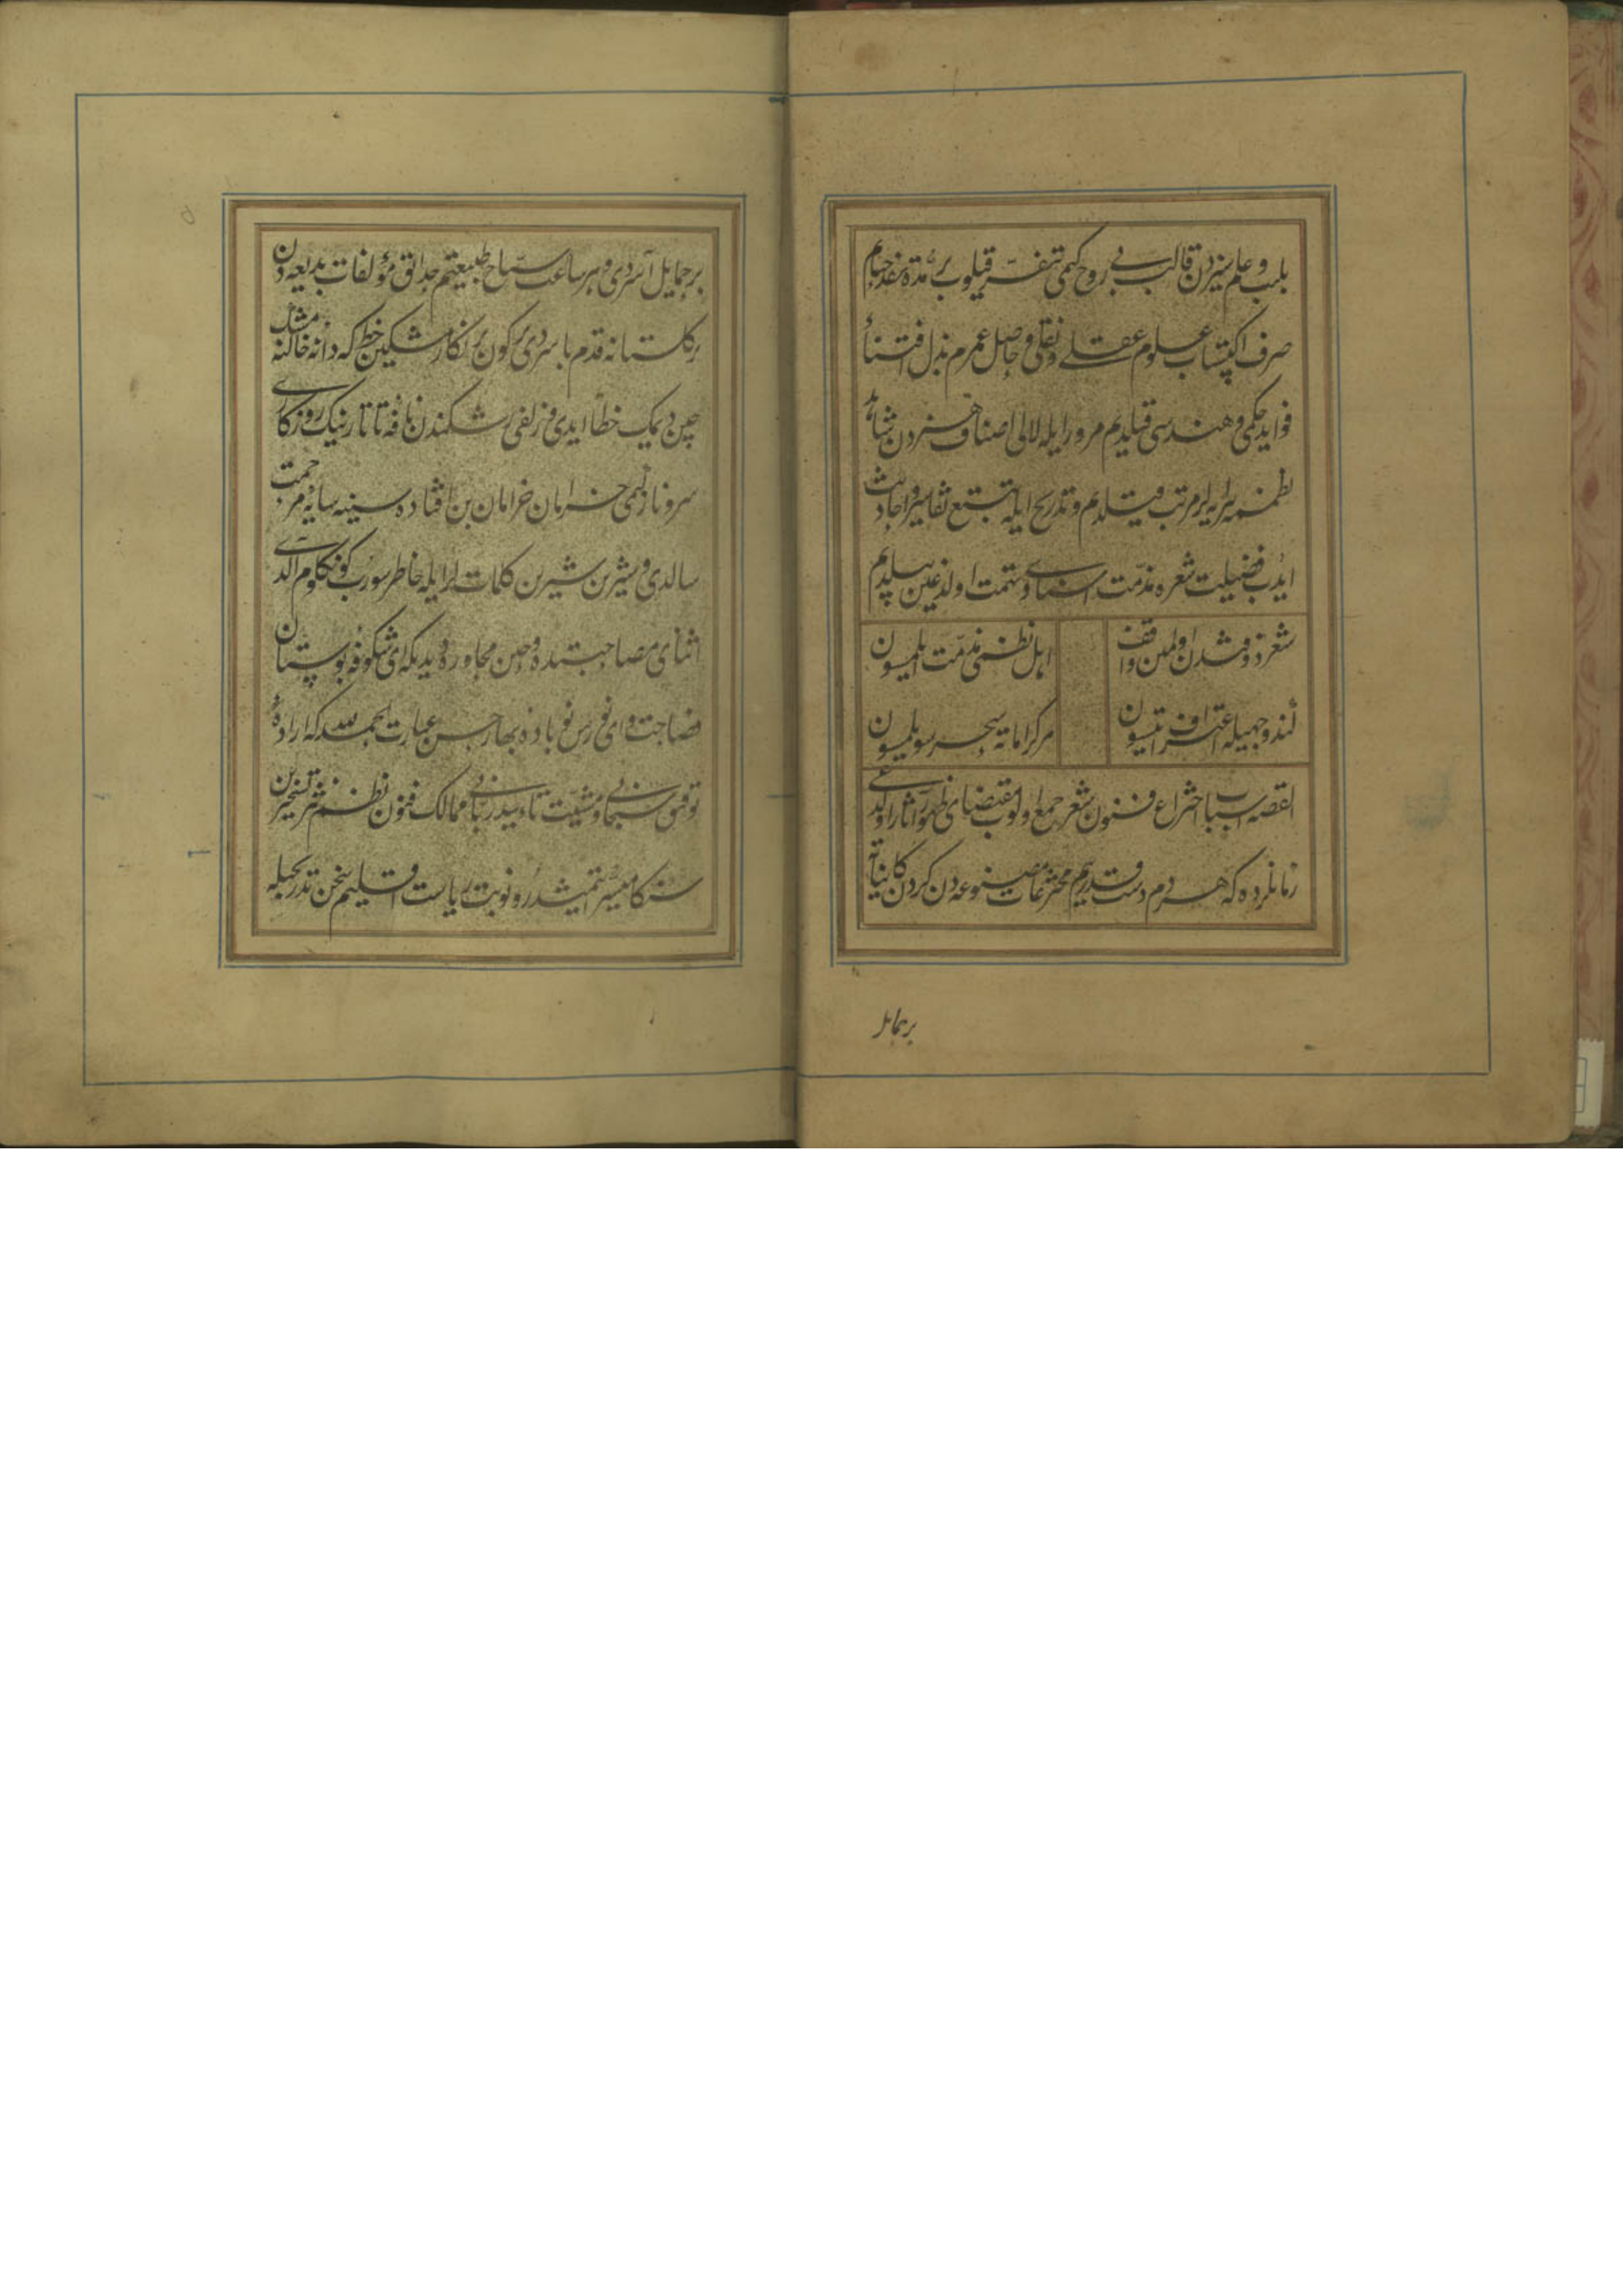 بلب و علمسیزدن قالب بی روح کمی تنفر قیلوب بر مدت نقد حیاتم
صرف اکتساب علوم عقلی و نقلی و حاصل عمرم بذل اقتنای
فواید حکمی و هندسی قیلدم مرور ایله لآلی اصناف هنردن شاهد
نظممه پیرایه لر مرتب قیلدم و تدریج ایله تتبع تفاسیر و احادیث
ایدب فضیلت شعره مذمت اسنادی دون همت اولدوغین بیلدم
شعر ذوقندن اولمین واقف
اهل نظمی مذمت ایلمسون
کندو جهلیله اعتراف ایتسون
هر کراماته سحر سویلمسون
القصه اسباب اختراع فنون شعر جمع اولوب مقتضای ظهور آثار اولدی
زمانلرده که هر دم دست قدرتم مخترعات مصنوعه دن کردن کایناته
بر حمایل
بر حمایل آسردی و هر ساعت سیاح طبیعتم حدایق مؤلفات بدیعه دن
بر کلستانه قدم باسردی بر کون بر نکار مشکین خط که دانه خالنه مشک
چین دیمک خطا ایدی و زلفی شکندن نافه تاتارنیک روزکاری
سرو نازلیمی خرامان خرامان بن افتاده سینه سایه مرحمت
سالدی و شیرین شیرین کلمات لر ایله خاطر سورب کونکلوم آلدی
اثنای مصاحبتده و حین محاوره ده دیدیکه ای شکوفه بوستان
فصاحت و ای نورس نوباوه بهار حسن عبارت الحمدلله که اراده
توفیق سبحانی و مشیت تأیید ربانی ممالک فنون نظم و نثر تسخیرین
سنکا میسر ایتمیشدر و نوبت ریاست اقلیم سخن تدریجیله